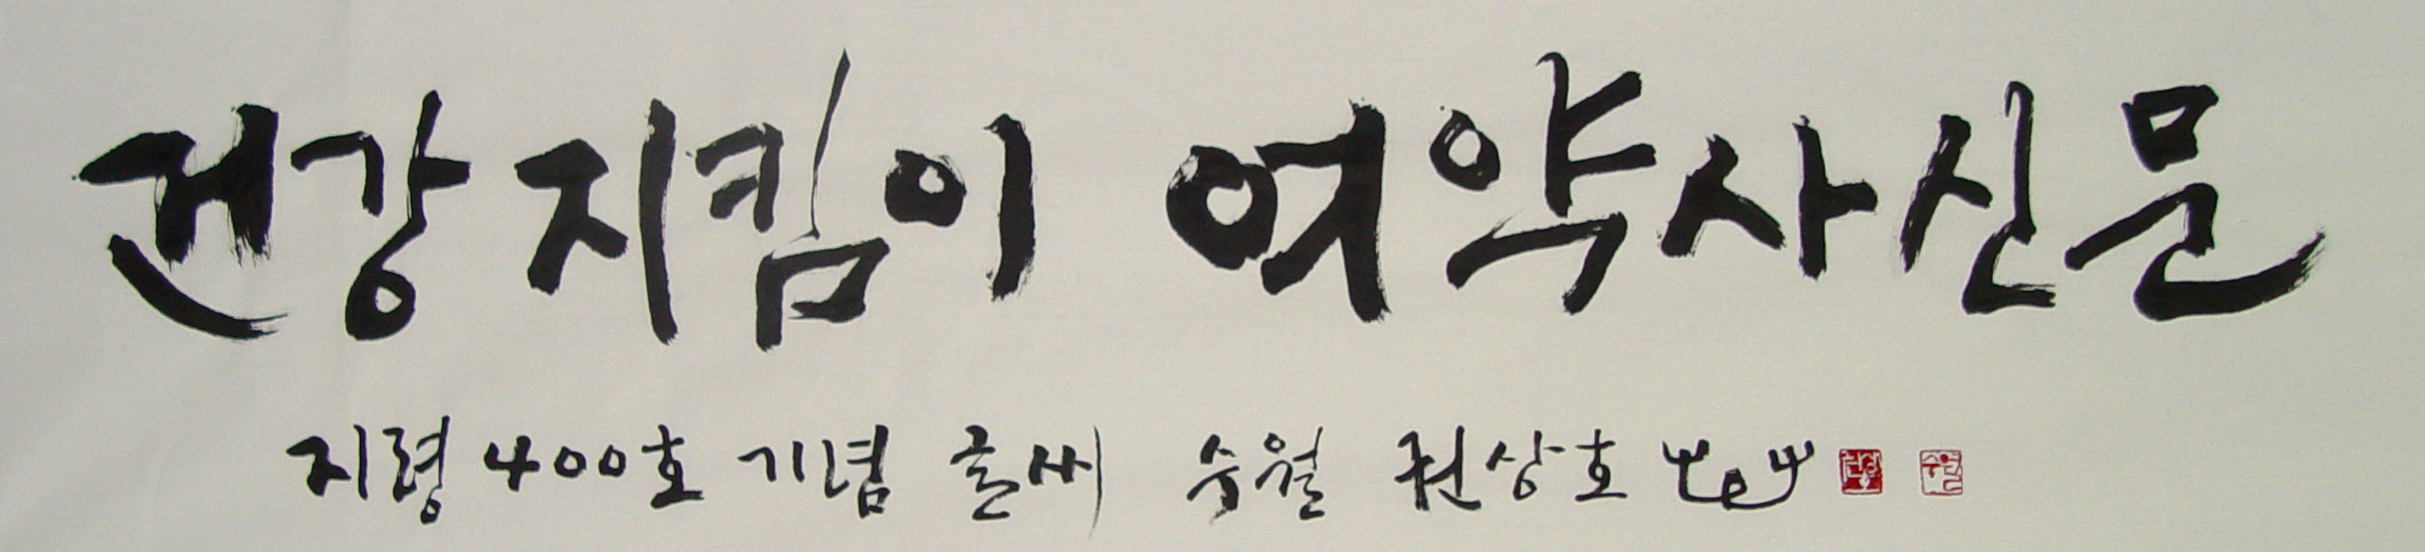 건강지킴이 여약사신문
지령 400호 기념 글씨 수월 권상호